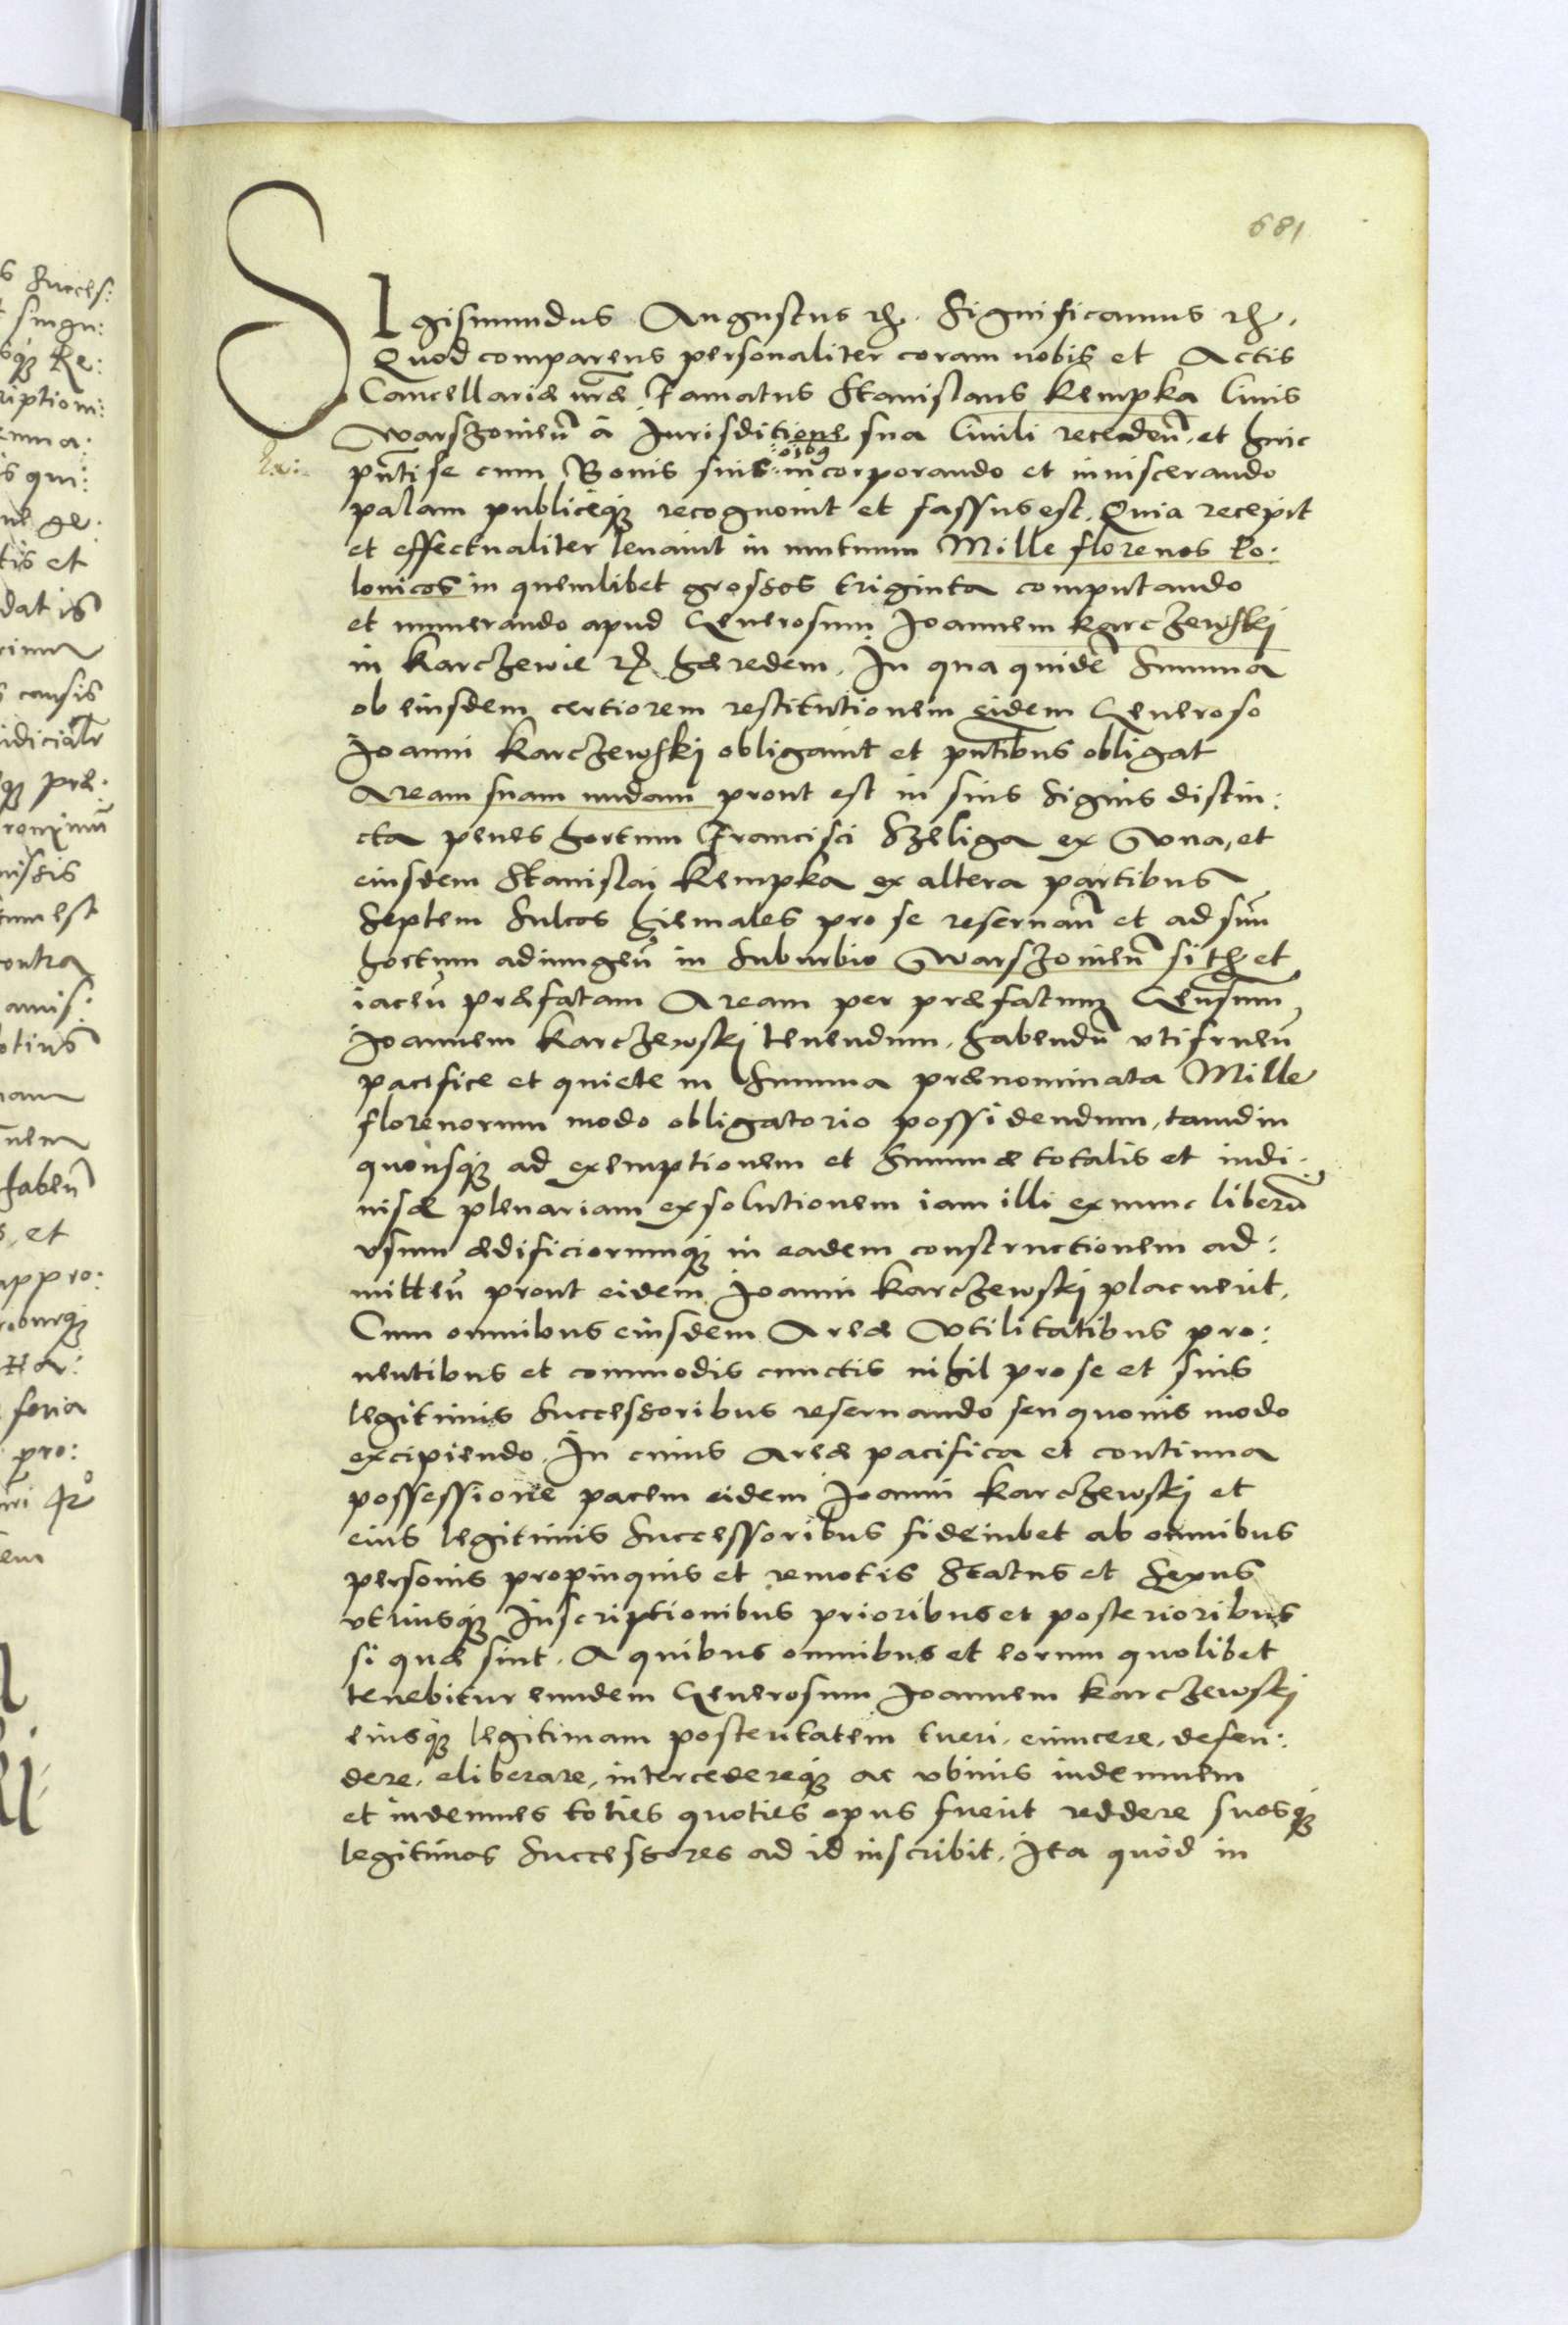 681
SIgismundus Augustus etc. Significamus etc.
Quod comparens personaliter coram nobis et Actis
Cancellariæ nr̄æ Famatus Stanislaus Kempka Civis
Warszovien̄ â Jurisditione sua Civili receden̄, et huic
pn̄ti se cum Bonis suis oībus incorporando et inviscerando
palam publiceq; recognovit et fassus est. Quia recepit
et effectualiter levavit in mutuum Mille florenos Po:
lonicos in quemlibet grossos triginta computando
et numerando apud Generosum Joannem Karczewskj
in Karczewie etc. hæredem. In qua quidē Summa
ob eiusdem certiorem restitutionem eidem Generoso
Joanni Karczewskj obligavit et pn̄tibus obligat
Aream suam nudam prout est in suis Signis distin:
cta penes hortum Francisci Szeliga ex Una, et
eiusdem Stanislai Kempka ex altera partibus
Septem Sulcos hiemales pro se reservan̄ et ad suū
hortum adiungen̄ in Suburbio Warszovien̄ sitħ et
iacen̄ præfatam Aream per præfatum Gen̄sum
Joannem Karczewskj tenendum, habendū utifruen̄
pacifice et quiete in Summa prænominata Mille
florenorum modo obligatorio possidendum, tamdiu
quousq; ad exemptionem et Summæ totalis et indi:
visæ plenariam exsolutionem iam illi ex nunc liberū
usum ædificiorumq; in eadem constructionem ad:
mitten̄ prout eidem Joanni Karczewskj placuerit.
Cum omnibus eiusdem Areæ Utilitatibus pro:
ventibus et commodis cunctis nihil pro se et suis
legitimis Successoribus reservando seu quovis modo
excipiendo. In cuius Areæ pacifica et continua
possessione pacem eidem Joanni Karczewskj et
eius legitimis Successoribus fideiubet ab omnibus
personis propinquis et remotis Status et Sexus
utriusq; Inscriptionibus prioribus et posterioribus
si quæ sint. A quibus omnibus et eorum quolibet
tenebitur eundem Generosum Joannem Karczewskj
eiusq; legitimam posteritatem tueri, evincere, defen:
dere, eliberare, intercedereq; ac ubivis indemnem
et indemnes toties quoties opus fuerit reddere suosq;
legitimos Successores ad id inscribit. Ita quòd in